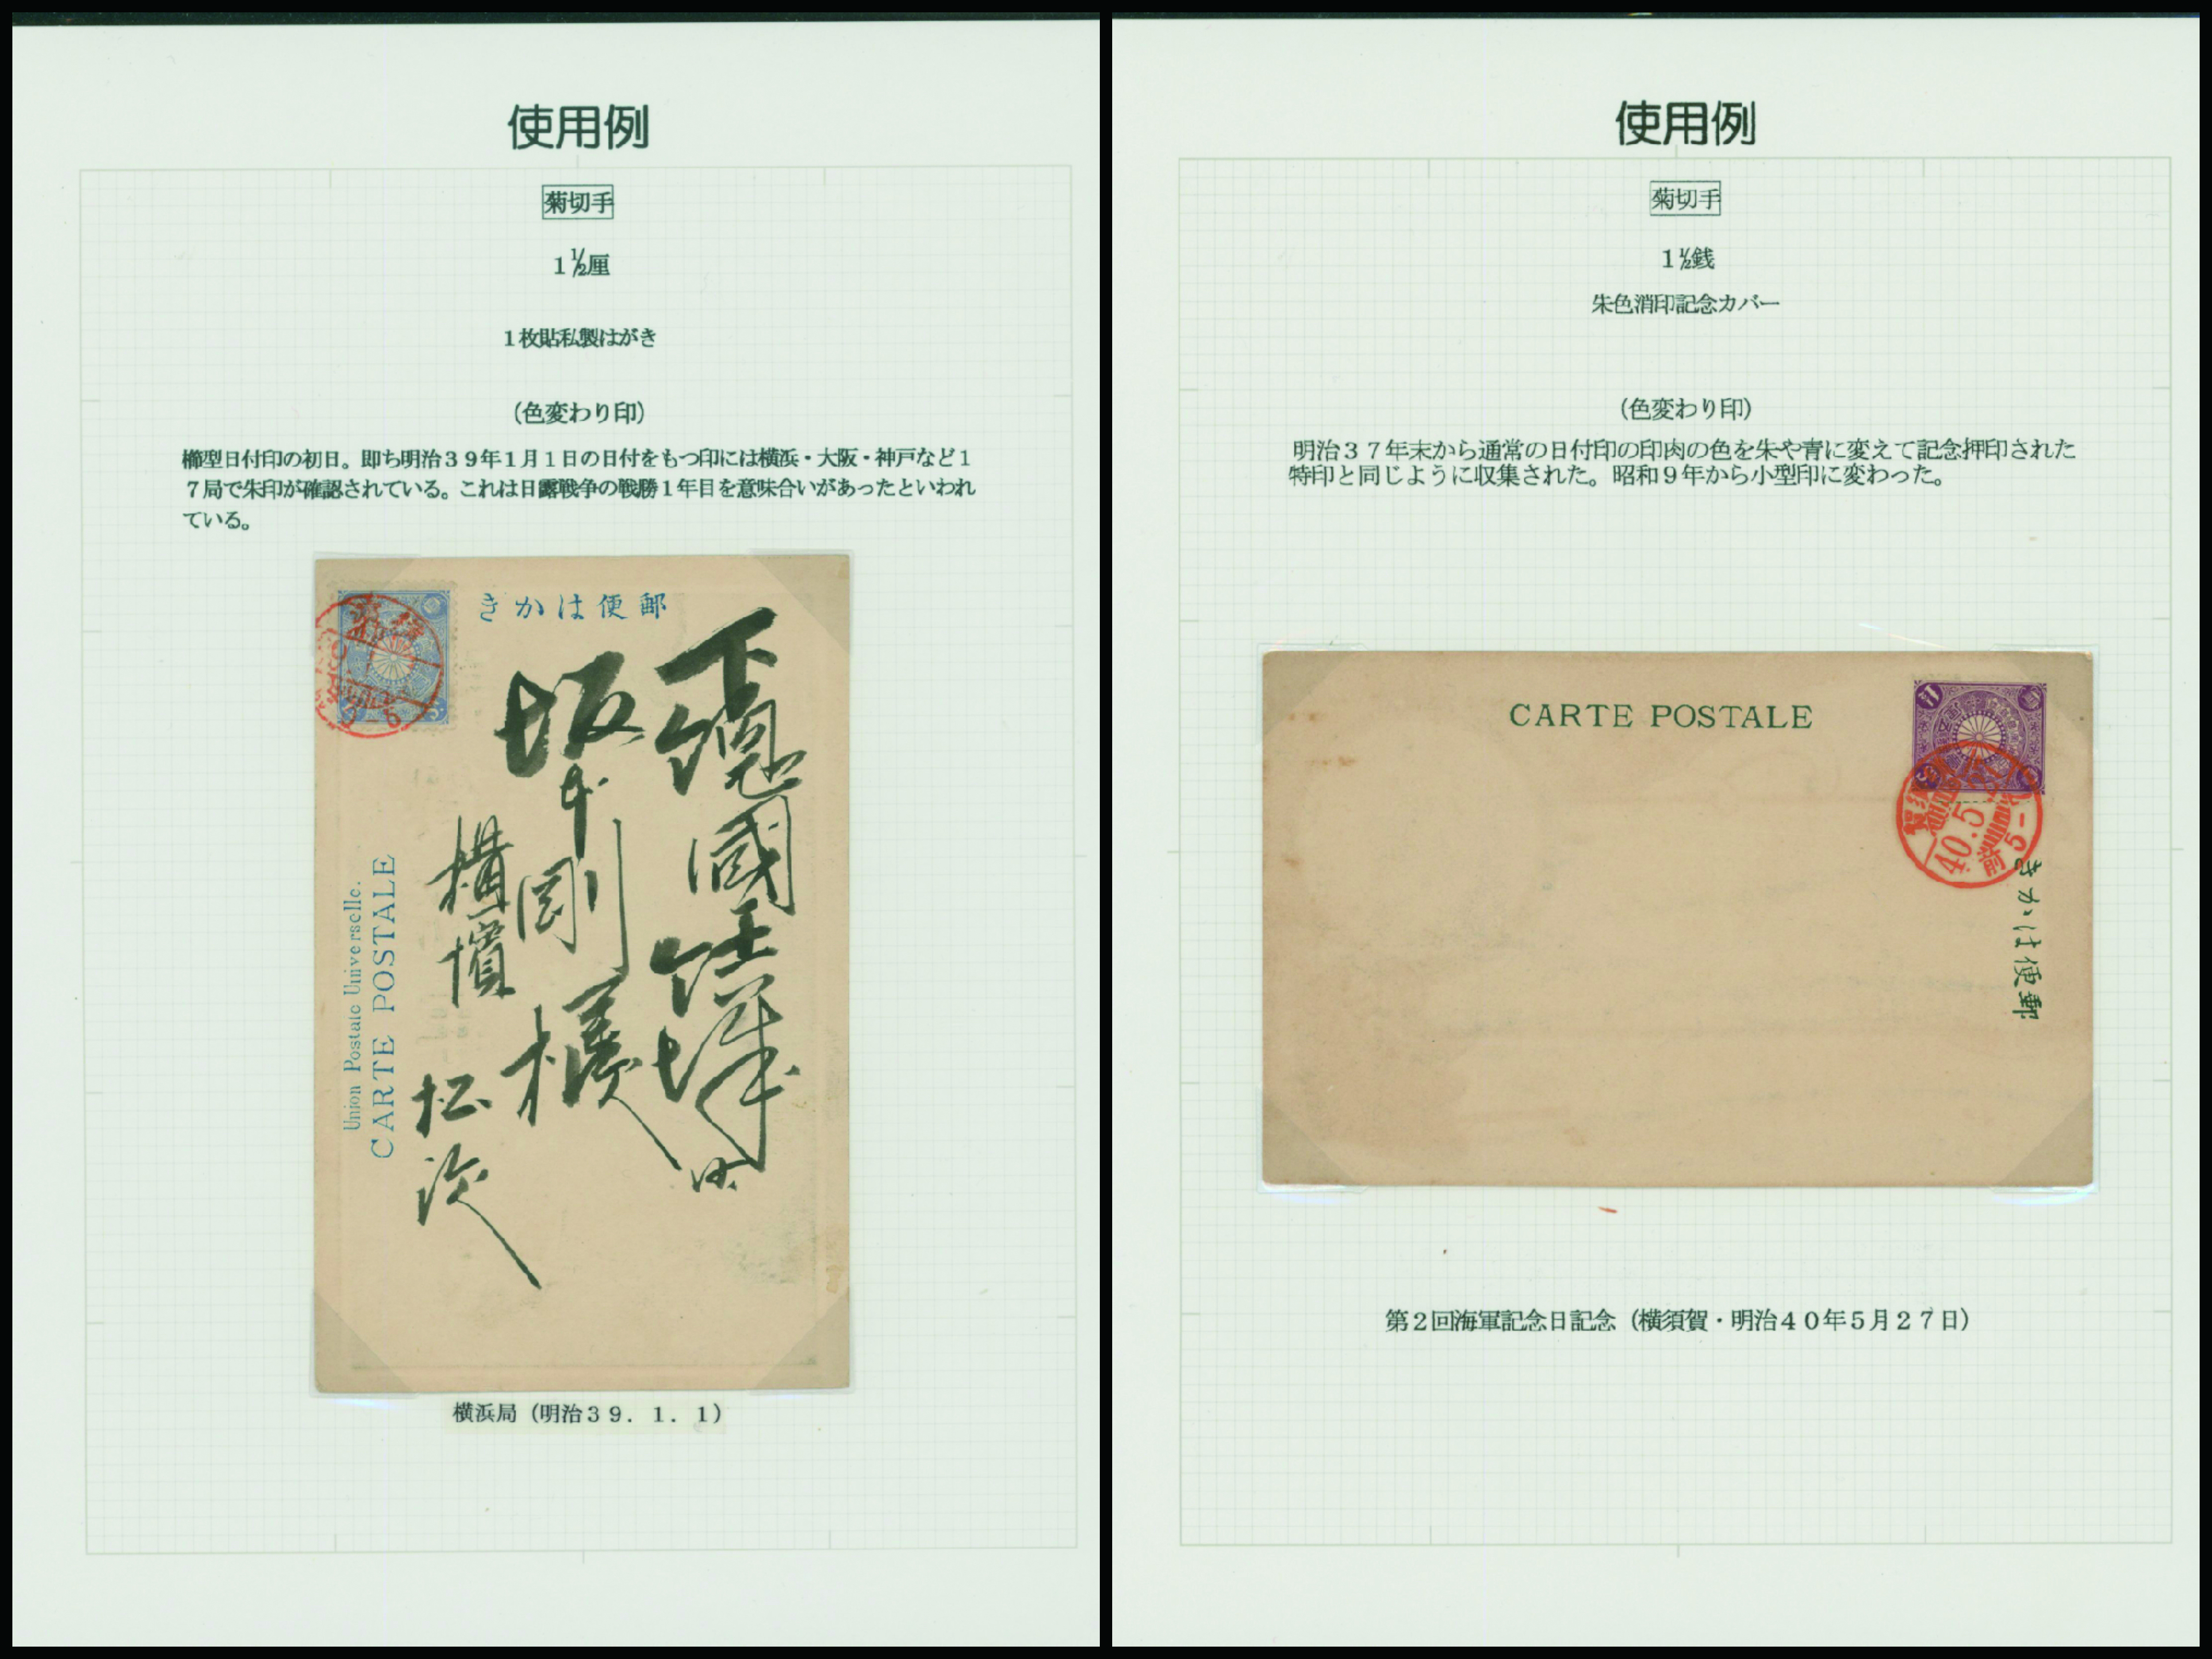 使用例
菊切手
1½厘
1枚貼私製はがき
(色変わり印)
櫛型日付印の初日。即ち明治39年1月1日の日付をもつ印には横浜・大阪・神戸など1
7局で朱印が確認されている。これは日露戦争の戦勝1年目を意味合いがあったといわれ
ている。
きかは便郵
下總國
坂本剛様
横濱
松次
Union Postale Universelle.
CARTE POSTALE
横浜局(明治39.1.1)
使用例
菊切手
1½銭
朱色消印記念カバー
(色変わり印)
明治37年末から通常の日付印の印肉の色を朱や青に変えて記念押印された
特印と同じように収集された。昭和9年から小型印に変わった。
CARTE POSTALE
40.5.
前 5-
きかは便郵
第2回海軍記念日記念(横須賀・明治40年5月27日)